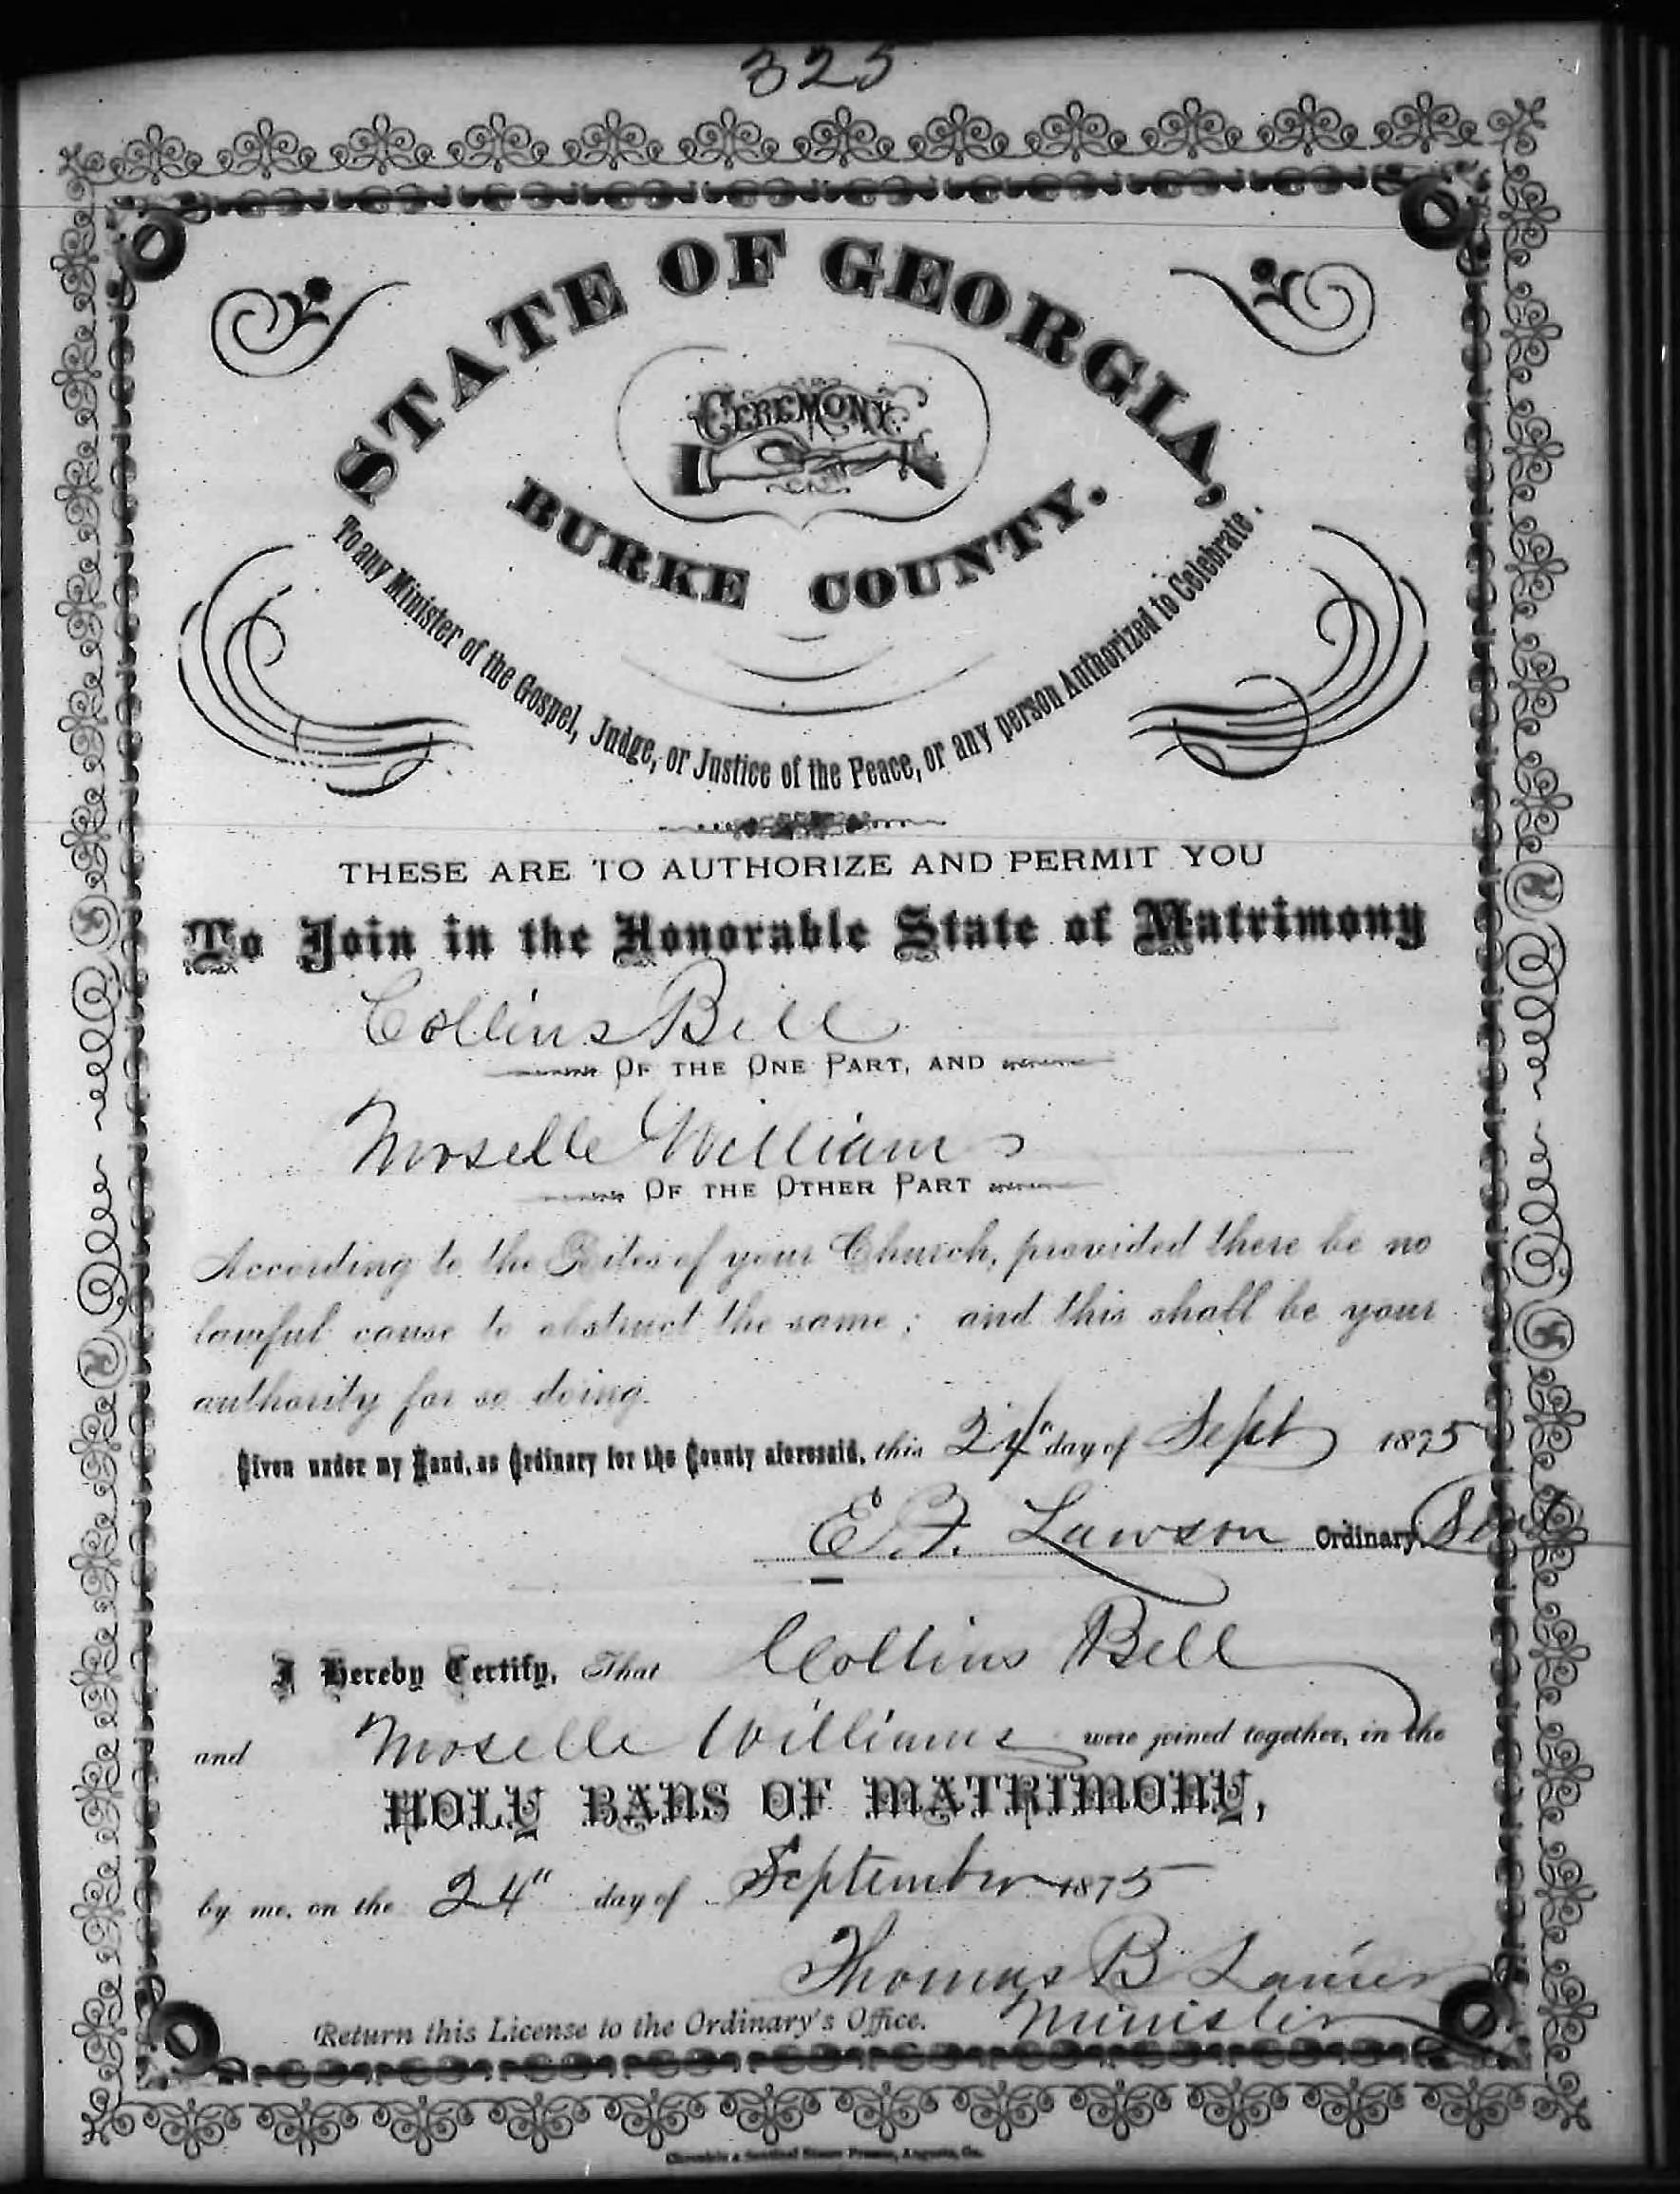 325
STATE OF GEORGIA,
CEREMONY.
BURKE COUNTY.
To any Minister of the Gospel, Judge, or Justice of the Peace, or any person Authorized to Celebrate.
THESE ARE TO AUTHORIZE AND PERMIT YOU
To Join in the Honorable State of Matrimony
Collins Bell
OF THE ONE PART, AND
Moselle Williams
OF THE OTHER PART
According to the Rites of your Church, provided there be no
lawful cause to obstruct the same; and this shall be your
authority for so doing.
Given under my Hand, as Ordinary for the County aforesaid, this 24" day of Sept 1875
E. F. Lawson Ordinary. Seal
I Hereby Certify, That Collins Bell
and Moselle Williams were joined together, in the
HOLY BANS OF MATRIMONY,
by me, on the 24" day of September 1875
Thomas B Lanier
Return this License to the Ordinary's Office. Minister
Chronicle & Sentinel Steam Presses, Augusta, Ga.